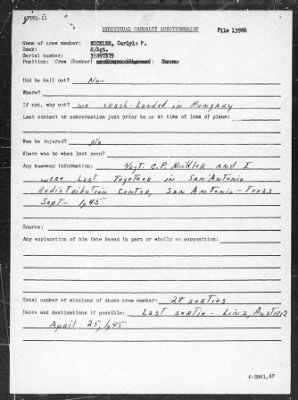 INDIVIDUAL CASUALTY QUESTIONNAIRE File 13986
Name of crew member: Carlyle P.
Rank: S/Sgt.
Serial number:
Position: Crew (Number) Gunner
Did he bail out? No
Where?
If not, why not? we crash landed in Hungary
Last contact or conversation just prior to or at time of loss of plane:
Was he injured? No
Where was he when last seen?
Any hearsay information: S/Sgt. C.P. and I
were last together in San Antonio
Redistribution Center, San Antonio - Texas
Sept - 1945
Source:
Any explanation of his fate based in part or wholly on supposition:
Total number of missions of above crew member: 28 sorties
Dates and destinations if possible: Last sortie - Linz, Austria
April 25, 1945
6-3861,AF